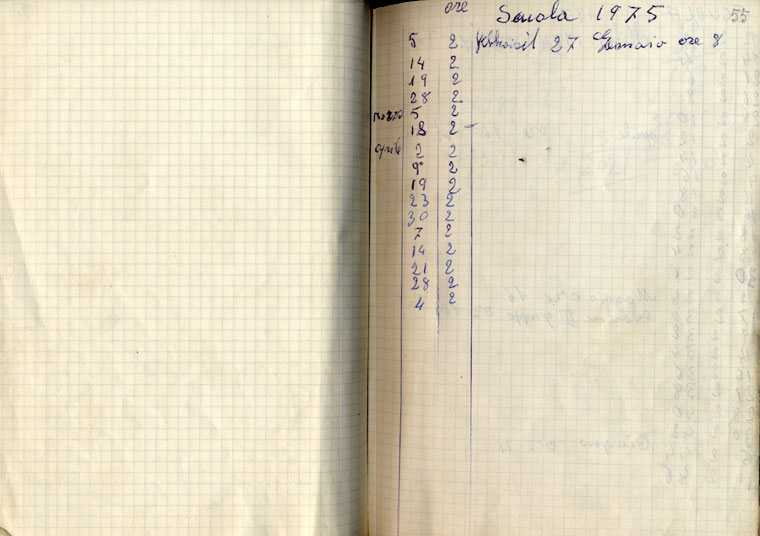 ore Scuola 1975 55
5 2 27 Gennaio ore 8
14 2
19 2
28 2
marzo 5 2
18 2 -
aprile 2 2
9 2
19 2
23 2
30 2
7 2
14 2
21 2
28 2
4 2